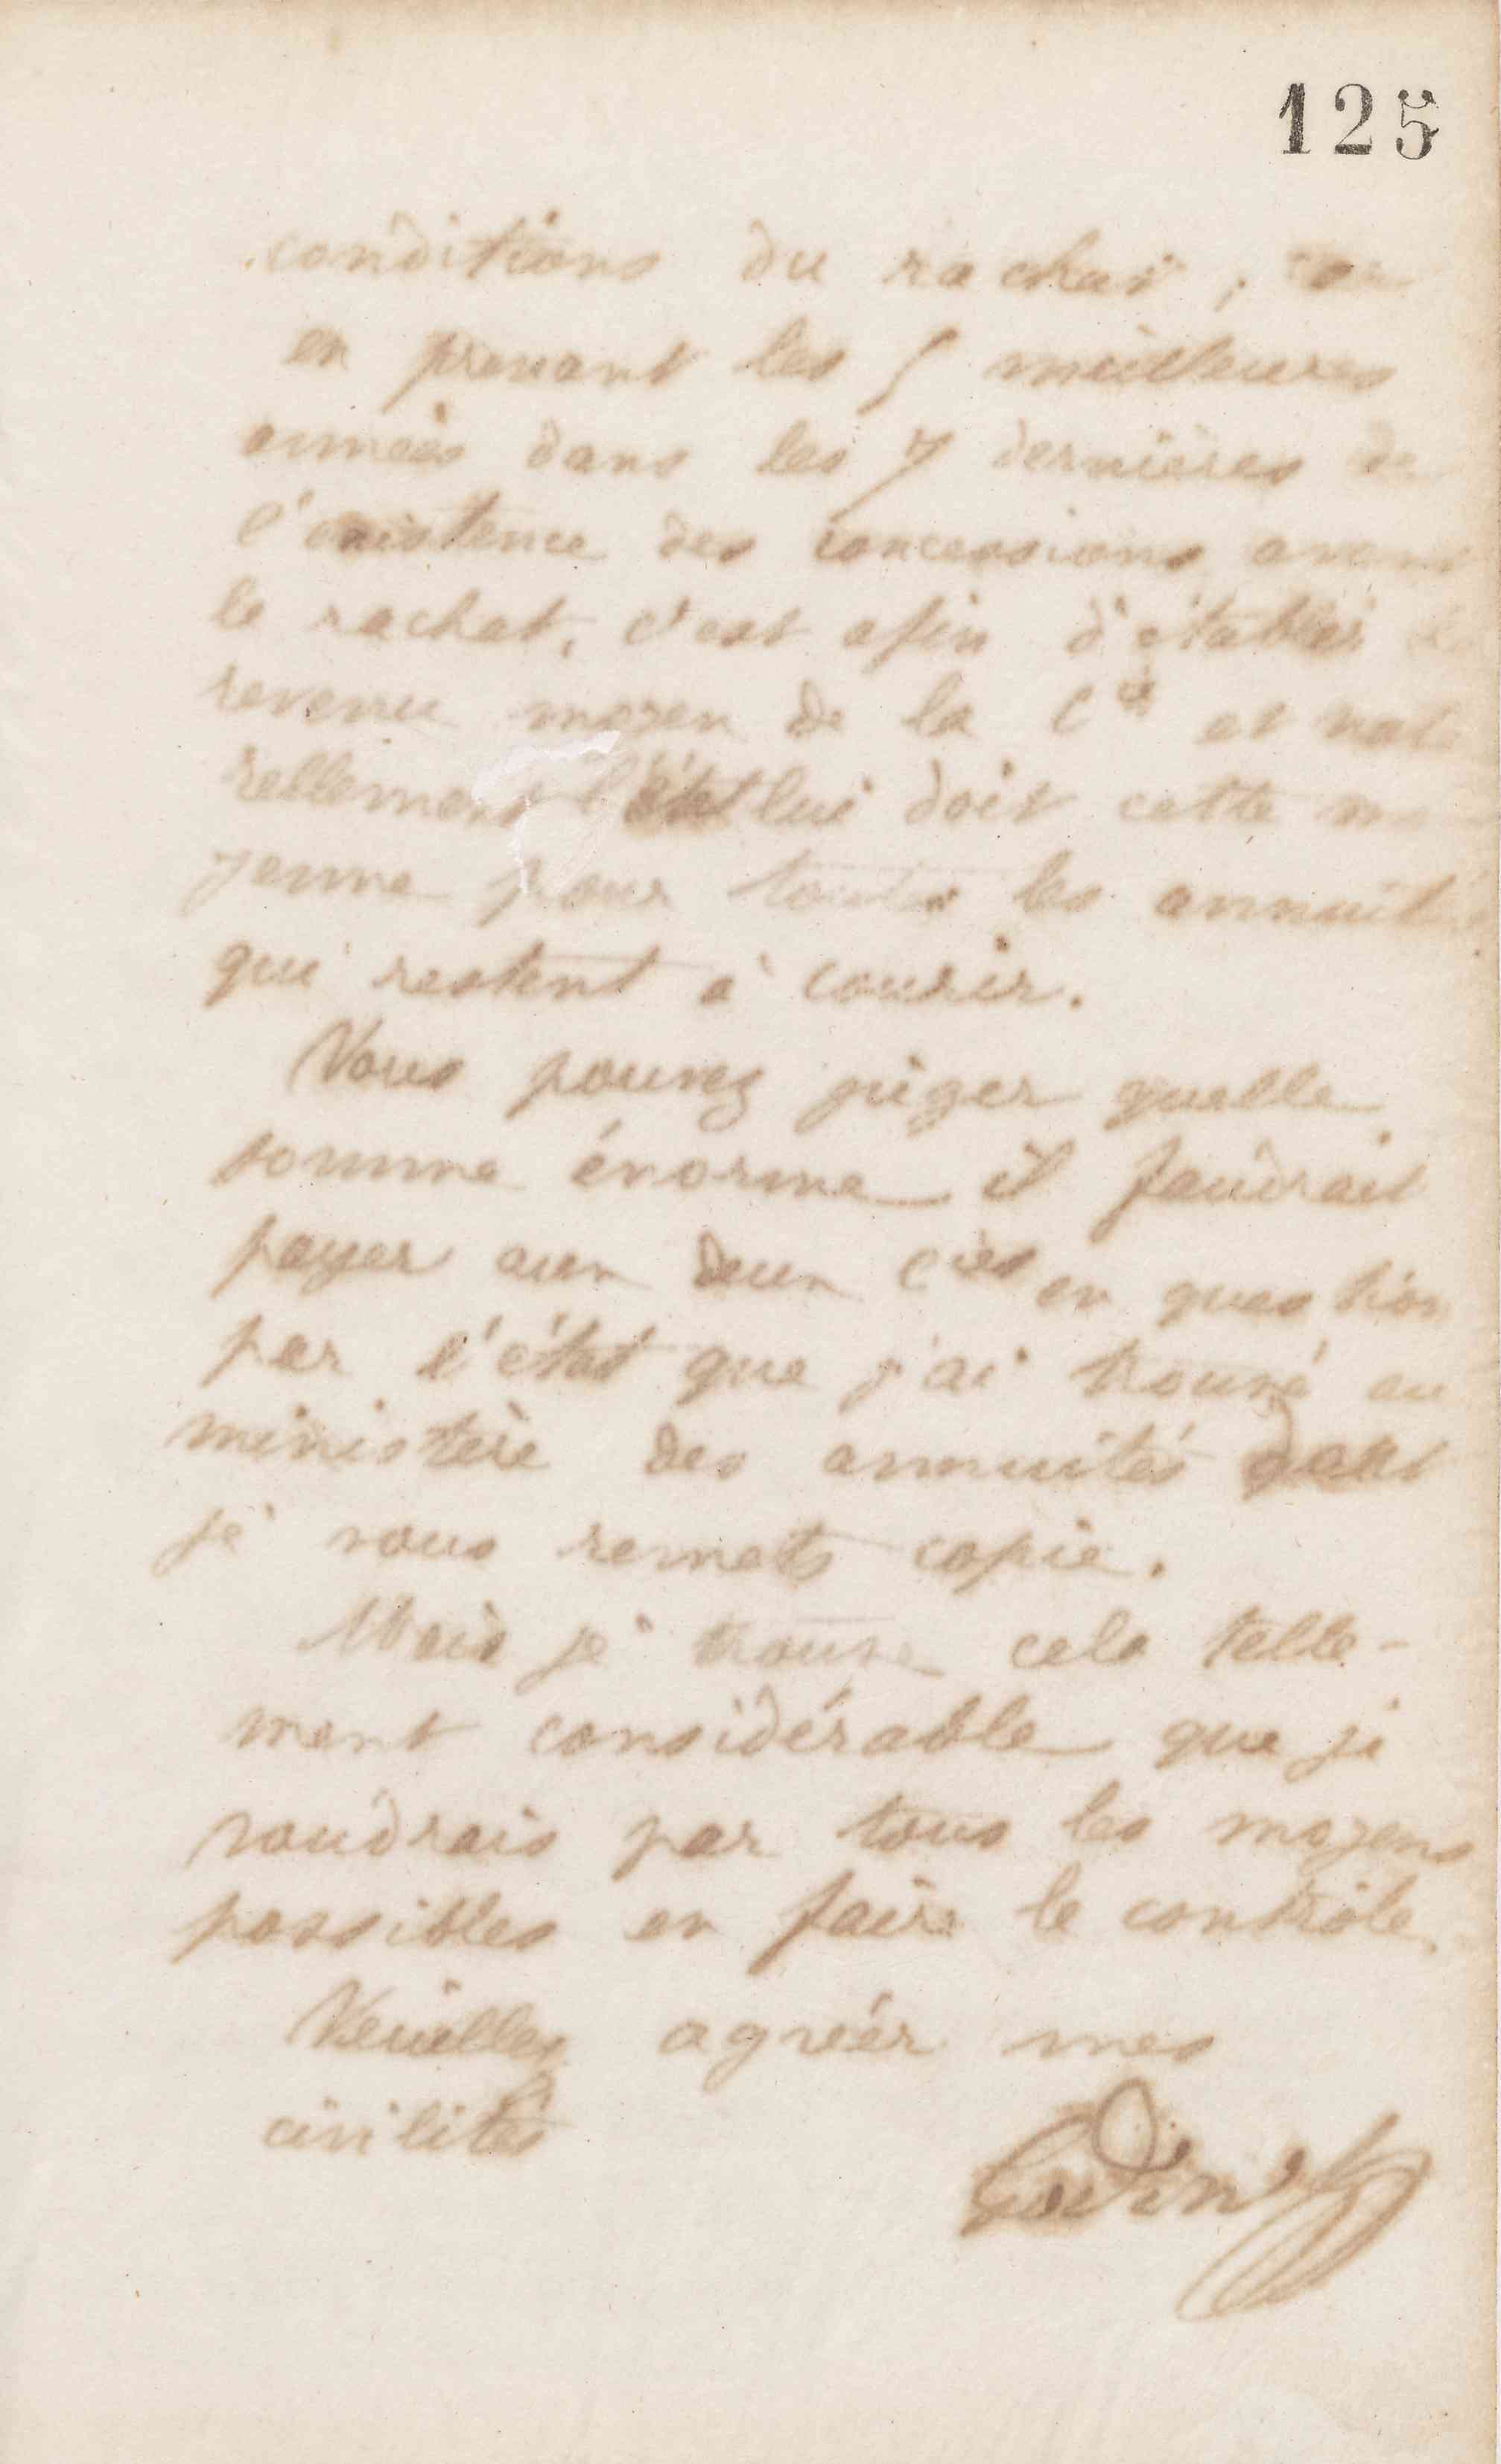 125
conditions du rachat, car
en prenant les 5 meilleures
années dans les 7 dernières de
l'existence des concessions avant
le rachat, c'est afin d'établir le
revenu moyen de la Cie et natu
rellement l'état lui doit cette mo
yenne pour toutes les annuités
qui restent à courir.
Vous pouvez juger quelle
somme énorme il faudrait
payer aux deux Cies en question
par l'état que j'ai trouvé au
ministère des annuités dont
je vous remets copie.
Mais je trouve cela telle-
ment considérable que je
voudrais par tous les moyens
possibles en faire le contrôle.
Veuillez agréer mes
civilités
Godin